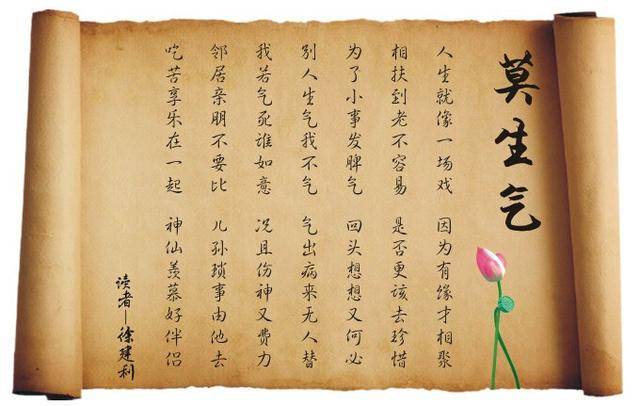 莫生气
人生就像一场戏 因为有缘才相聚
相扶到老不容易 是否更该去珍惜
为了小事发脾气 回头想想又何必
别人生气我不气 气出病来无人替
我若气死谁如意 况且伤神又费力
邻居亲朋不要比 儿孙琐事由他去
吃苦享乐在一起 神仙羡慕好伴侣
读者—徐建利